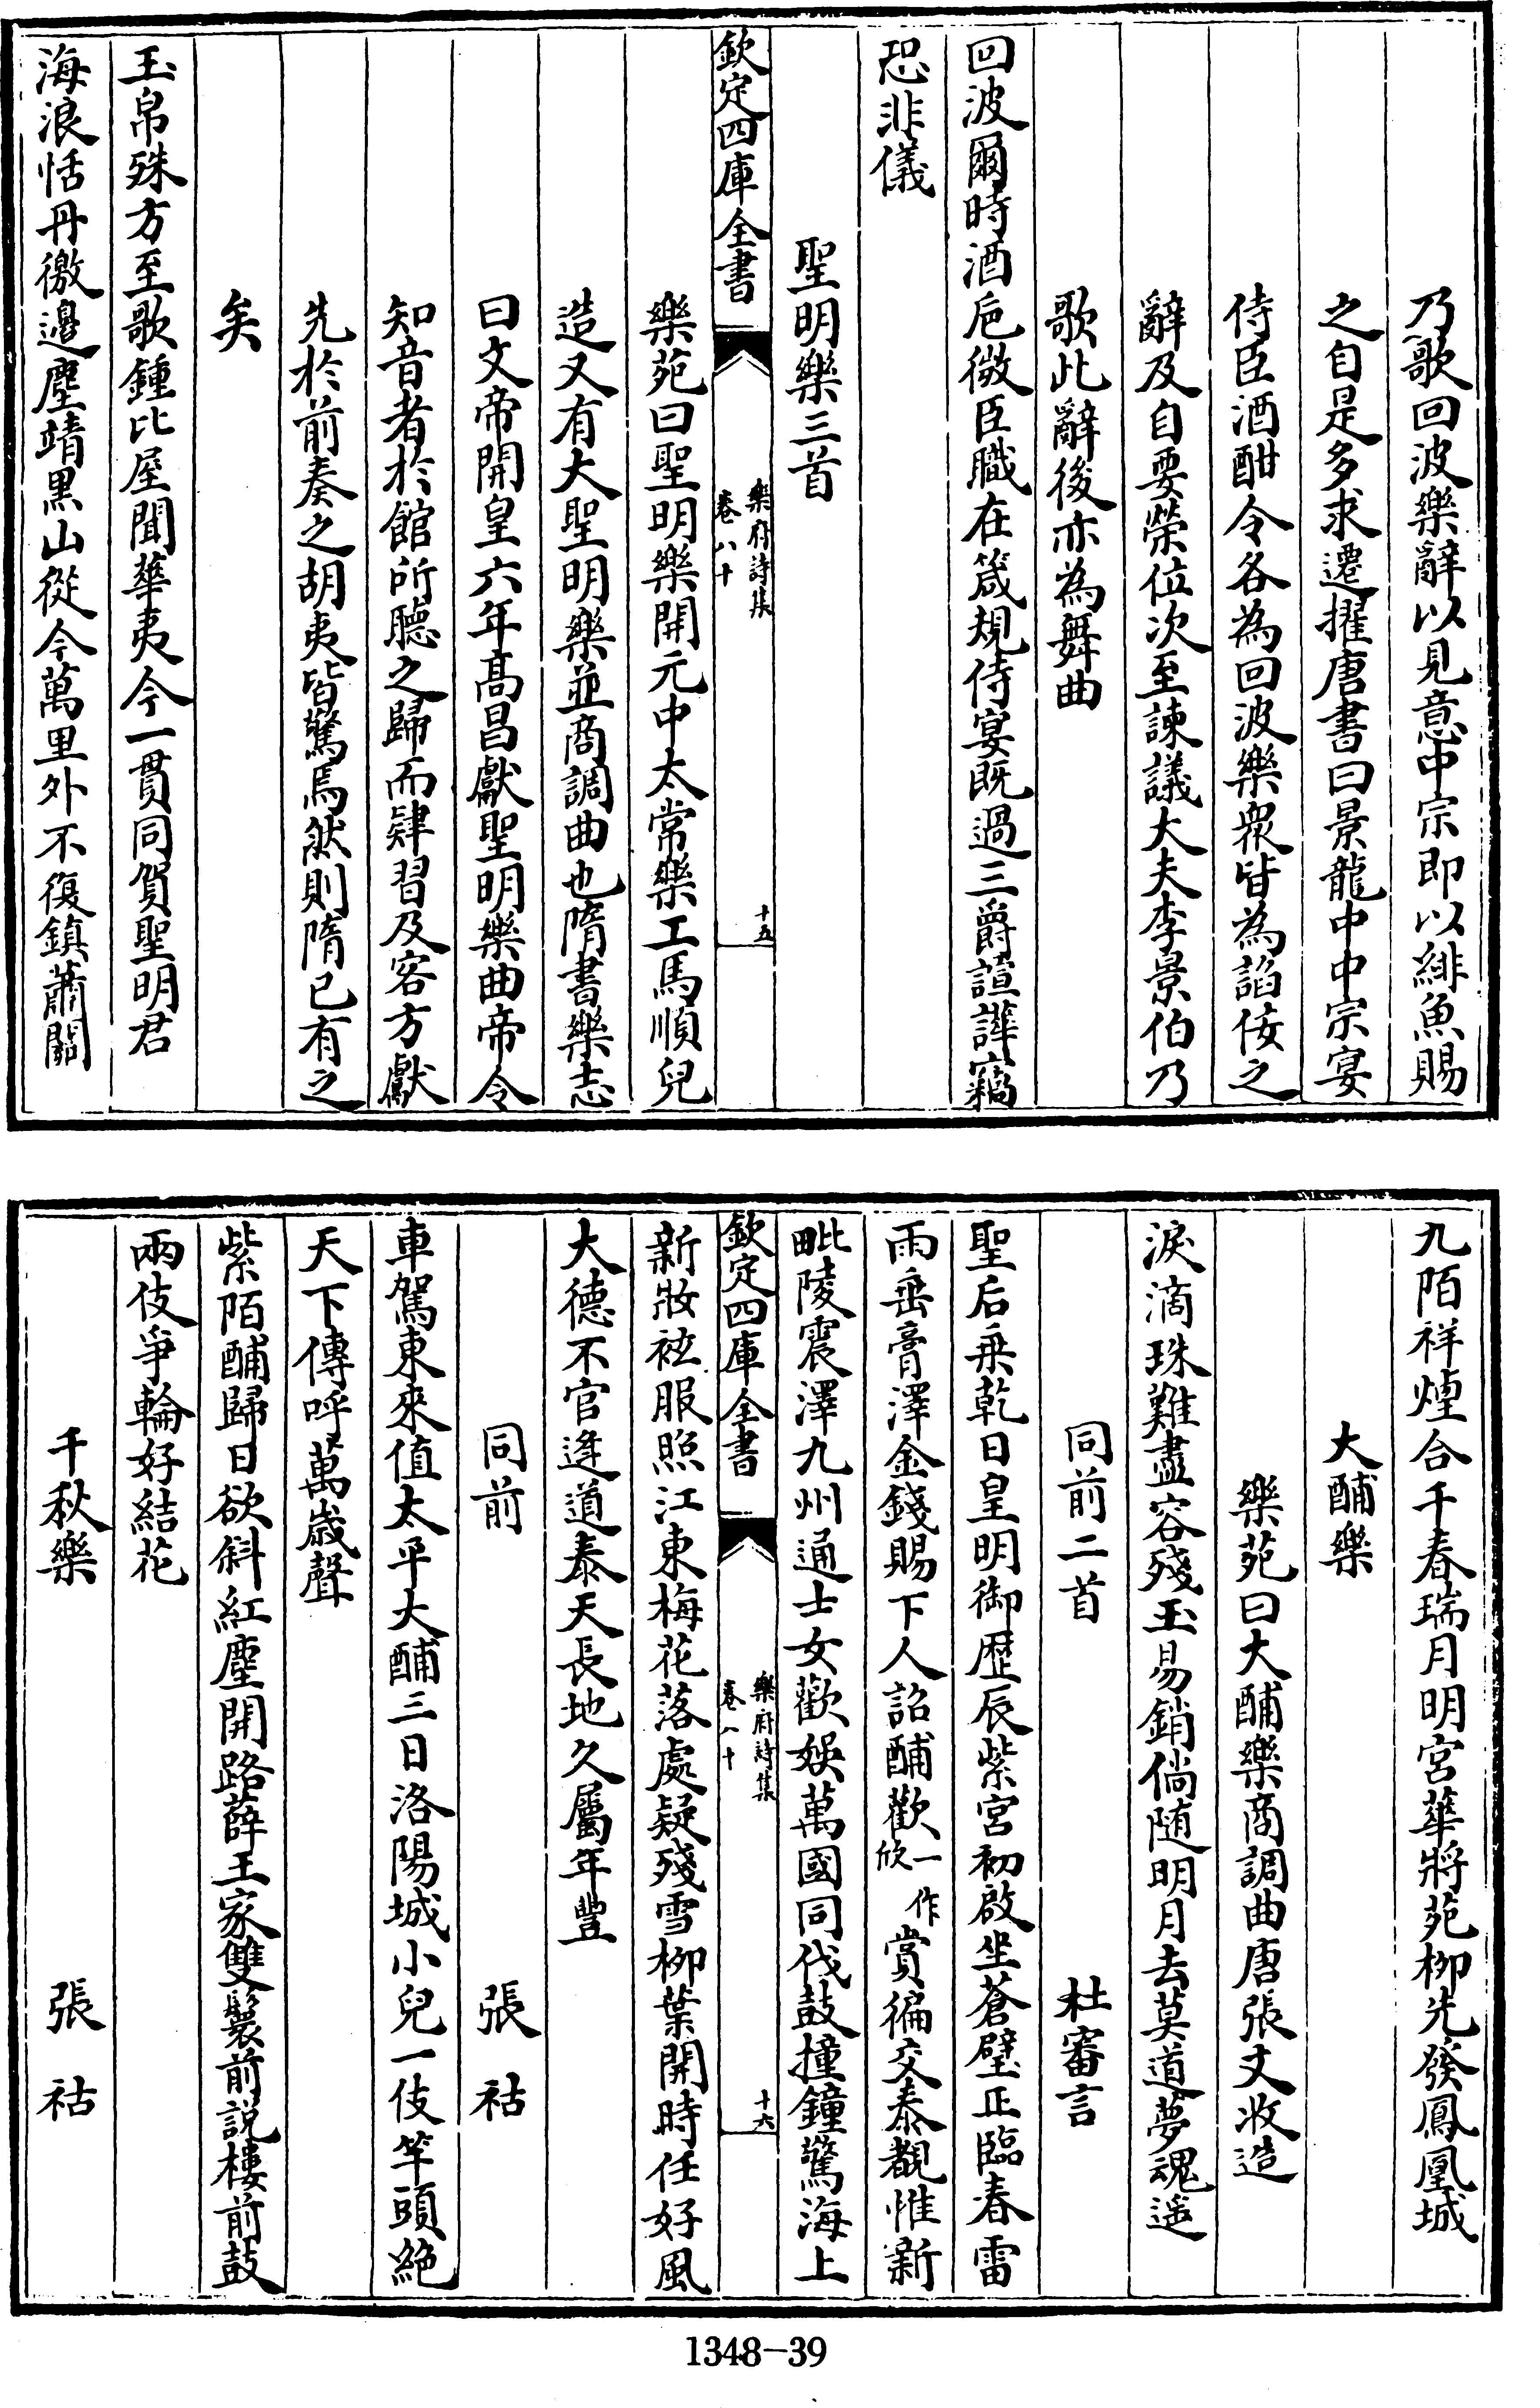 乃歌回波樂辭以見意中宗即以緋魚賜
之自是多求遷擢唐書曰景龍中中宗宴
侍臣酒酣令各為回波樂衆皆為諂佞之
辭及自要榮位次至諫議大夫李景伯乃
歌此辭後亦為舞曲
回波爾時酒巵微臣職在箴規侍宴既過三爵諠譁竊
恐非儀
聖明樂三首
欽定四庫全書
樂府詩集
卷八十
十五
樂苑曰聖明樂開元中太常樂工馬順兒
造又有大聖明樂並商調曲也隋書樂志
曰文帝開皇六年高昌獻聖明樂曲帝令
知音者於館所聽之歸而肄習及客方獻
先於前奏之胡夷皆驚焉然則隋已有之
矣
玉帛殊方至歌鍾比屋聞華夷今一貫同賀聖明君
海浪恬丹徼邊塵靖黑山從今萬里外不復鎮蕭關
九陌祥煙合千春瑞月明宮華將苑柳先發鳳凰城
大酺樂
樂苑曰大酺樂商調曲唐張文收造
淚滴珠難盡容殘玉易銷倘随明月去莫道夢魂遥
同前二首 杜審言
聖后乗乾日皇明御歴辰紫宮初啟坐蒼璧正臨春雷
雨垂膏澤金錢賜下人詔酺歡一作欣賞徧交泰覩惟新
毗陵震澤九州通士女歡娛萬國同伐鼓撞鐘驚海上
欽定四庫全書
樂府詩集
卷八十
十六
新妝袨服照江東梅花落處疑殘雪柳葉開時任好風
大德不官逢道泰天長地久屬年豐
同前 張祜
車駕東來值太平大酺三日洛陽城小兒一伎竿頭絶
天下傳呼萬歲聲
紫陌酺歸日欲斜紅塵開路薛王家雙鬟前說樓前鼓
兩伎爭輪好結花
千秋樂 張祜
1348-39